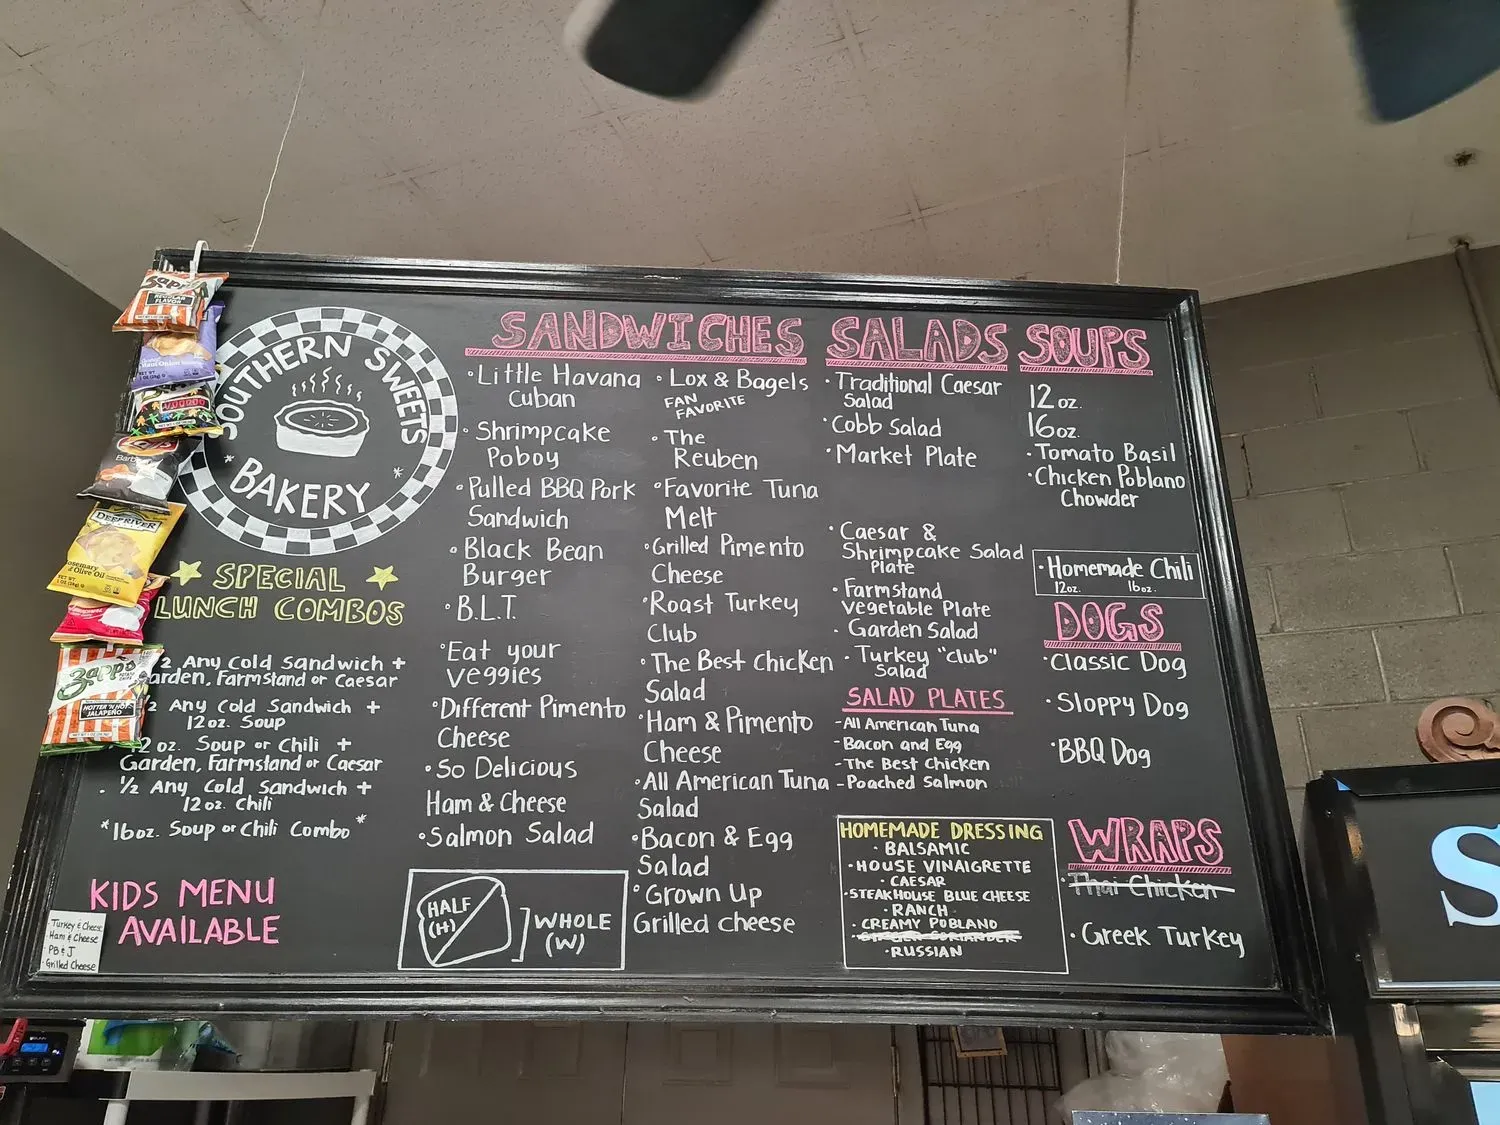 SOUTHERN SWEETS
* BAKERY *
SPECIAL
LUNCH COMBOS
2 Any Cold Sandwich +
arden, Farmstand or Caesar
2 Any Cold Sandwich +
12oz. Soup
12 oz. Soup or Chili +
Garden, Farmstand or Caesar
· ½ Any Cold Sandwich +
12oz. Chili
*16oz. Soup or Chili Combo*
KIDS MENU
AVAILABLE
Turkey & Cheese
Ham & Cheese
· PB & J
· Grilled Cheese
SANDWICHES
· Little Havana
Cuban
· Shrimpcake
Poboy
· Pulled BBQ Pork
Sandwich
· Black Bean
Burger
· B.L.T.
· Eat your
veggies
· Different Pimento
Cheese
· So Delicious
Ham & Cheese
· Salmon Salad
HALF
(H)
WHOLE
(W)
· Lox & Bagels
FAN
FAVORITE
· The
Reuben
· Favorite Tuna
Melt
· Grilled Pimento
Cheese
· Roast Turkey
Club
· The Best Chicken
Salad
· Ham & Pimento
Cheese
· All American Tuna
Salad
· Bacon & Egg
Salad
· Grown Up
Grilled cheese
SALADS
· Traditional Caesar
Salad
· Cobb Salad
· Market Plate
· Caesar &
Shrimpcake Salad
Plate
· Farmstand
vegetable Plate
· Garden Salad
· Turkey "club"
Salad
SALAD PLATES
-All American Tuna
-Bacon and Egg
-The Best Chicken
-Poached Salmon
HOMEMADE DRESSING
· BALSAMIC
· HOUSE VINAIGRETTE
· CAESAR
· STEAKHOUSE BLUE CHEESE
· RANCH
· CREAMY POBLANO
· RUSSIAN
SOUPS
12 oz.
16 oz.
· Tomato Basil
· Chicken Poblano
Chowder
· Homemade Chili
12oz. 16oz.
DOGS
· Classic Dog
· Sloppy Dog
· BBQ Dog
WRAPS
· Thai Chicken
· Greek Turkey
Zapp's
REGULAR
FLAVOR
VOODOO
DEEP RIVER
Rosemary
& Olive Oil
Zapp's
HOTTER 'N HOT
JALAPEÑO
S